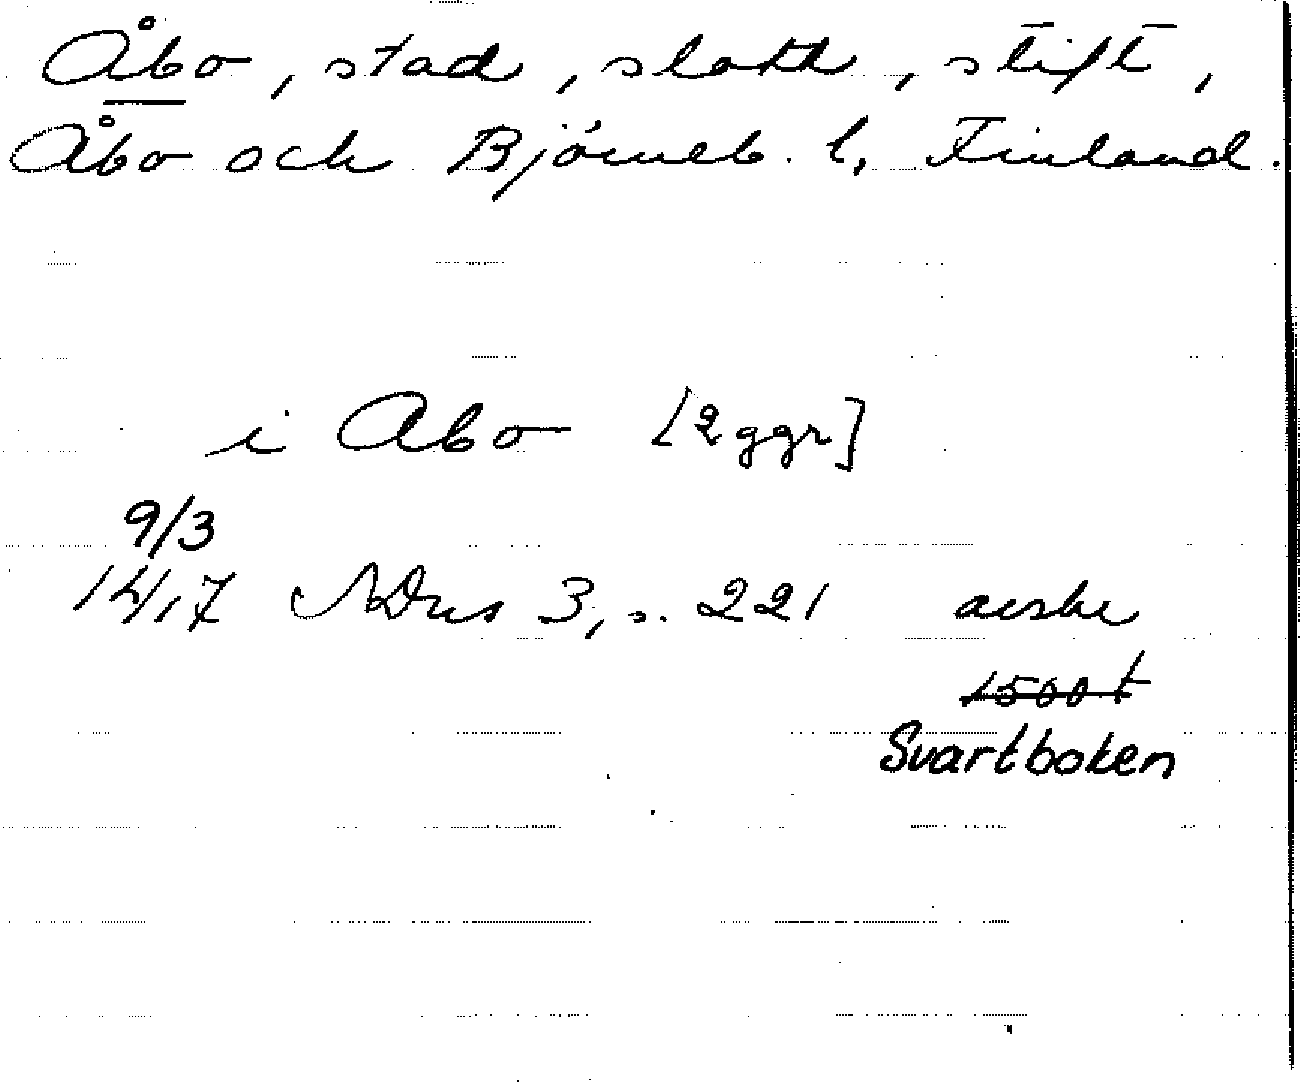 Åbo, stad, slott, stift,
Åbo och Björneb. l, Finland.
i Abo [2 ggr]
9/3
1417 NDns 3, s. 221 avskr
1500 t
Svartboken